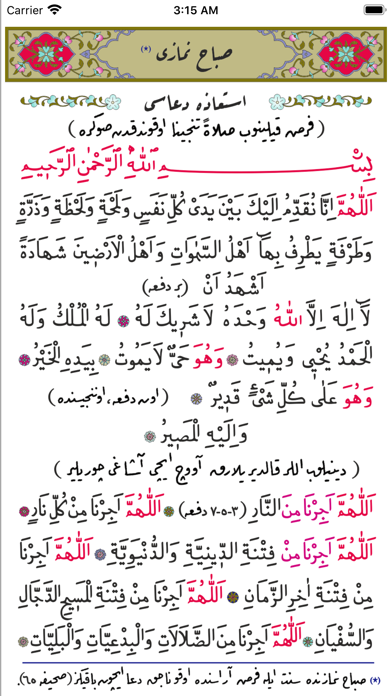 Carrier 3:15 AM
صباح نمازى (*)
استعاذه دعاسى
(فرض قيلينوب صلاةً تنجينا اوقوندقدن صوكره)
بِسْمِ اللّٰهِ الرَّحْمٰنِ الرَّحِيمِ
اَللّٰهُمَّ اِنَّا نُقَدِّمُ اِلَيْكَ بَيْنَ يَدَىْ كُلِّ نَفَسٍ وَلَمْحَةٍ وَلَحْظَةٍ وَذَرَّةٍ
وَطَرْفَةٍ يَطْرِفُ بِهَا اَهْلُ السَّمٰوَاتِ وَاَهْلُ الْاَرَضِينَ شَهَادَةً
اَشْهَدُ اَنْ (بر دفعه)
لَا اِلٰهَ اِلَّا اللّٰهُ وَحْدَهُ لَا شَرِيكَ لَهُ لَهُ الْمُلْكُ وَلَهُ
الْحَمْدُ يُحْيِى وَيُمِيتُ وَهُوَ حَىٌّ لَا يَمُوتُ بِيَدِهِ الْخَيْرُ
وَهُوَ عَلٰى كُلِّ شَىْءٍ قَدِيرٌ (اون دفعه، اوننجيسنده)
وَاِلَيْهِ الْمَصِيرُ
(دينيلوب اللر قالديريلارق آووچ ايچى آشاغى چوريلير)
اَللّٰهُمَّ اَجِرْنَا مِنَ النَّارِ (٣-٥-٧ دفعه) اَللّٰهُمَّ اَجِرْنَا مِنْ كُلِّ نَارٍ
اَللّٰهُمَّ اَجِرْنَا مِنْ فِتْنَةِ الدِّينِيَّةِ وَالدُّنْيَوِيَّةِ اَللّٰهُمَّ اَجِرْنَا
مِنْ فِتْنَةِ اٰخِرِ الزَّمَانِ اَللّٰهُمَّ اَجِرْنَا مِنْ فِتْنَةِ الْمَسِيحِ الدَّجَّالِ
وَالسُّفْيَانِ اَللّٰهُمَّ اَجِرْنَا مِنَ الضَّلَالَاتِ وَالْبِدْعِيَّاتِ وَالْبَلِيَّاتِ
(*) صباح نمازنده سنت ايله فرض آراسنده اوقوناجق دعا ايچون باقيڭز (صحيفه ٦٥).